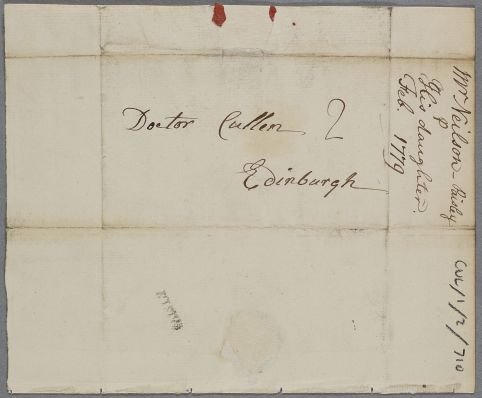 Doctor Cullen 2
Edinburgh
Mr Neilson - Paisley
P
His daughter.
Feb. 1779
CUL/1/2/710